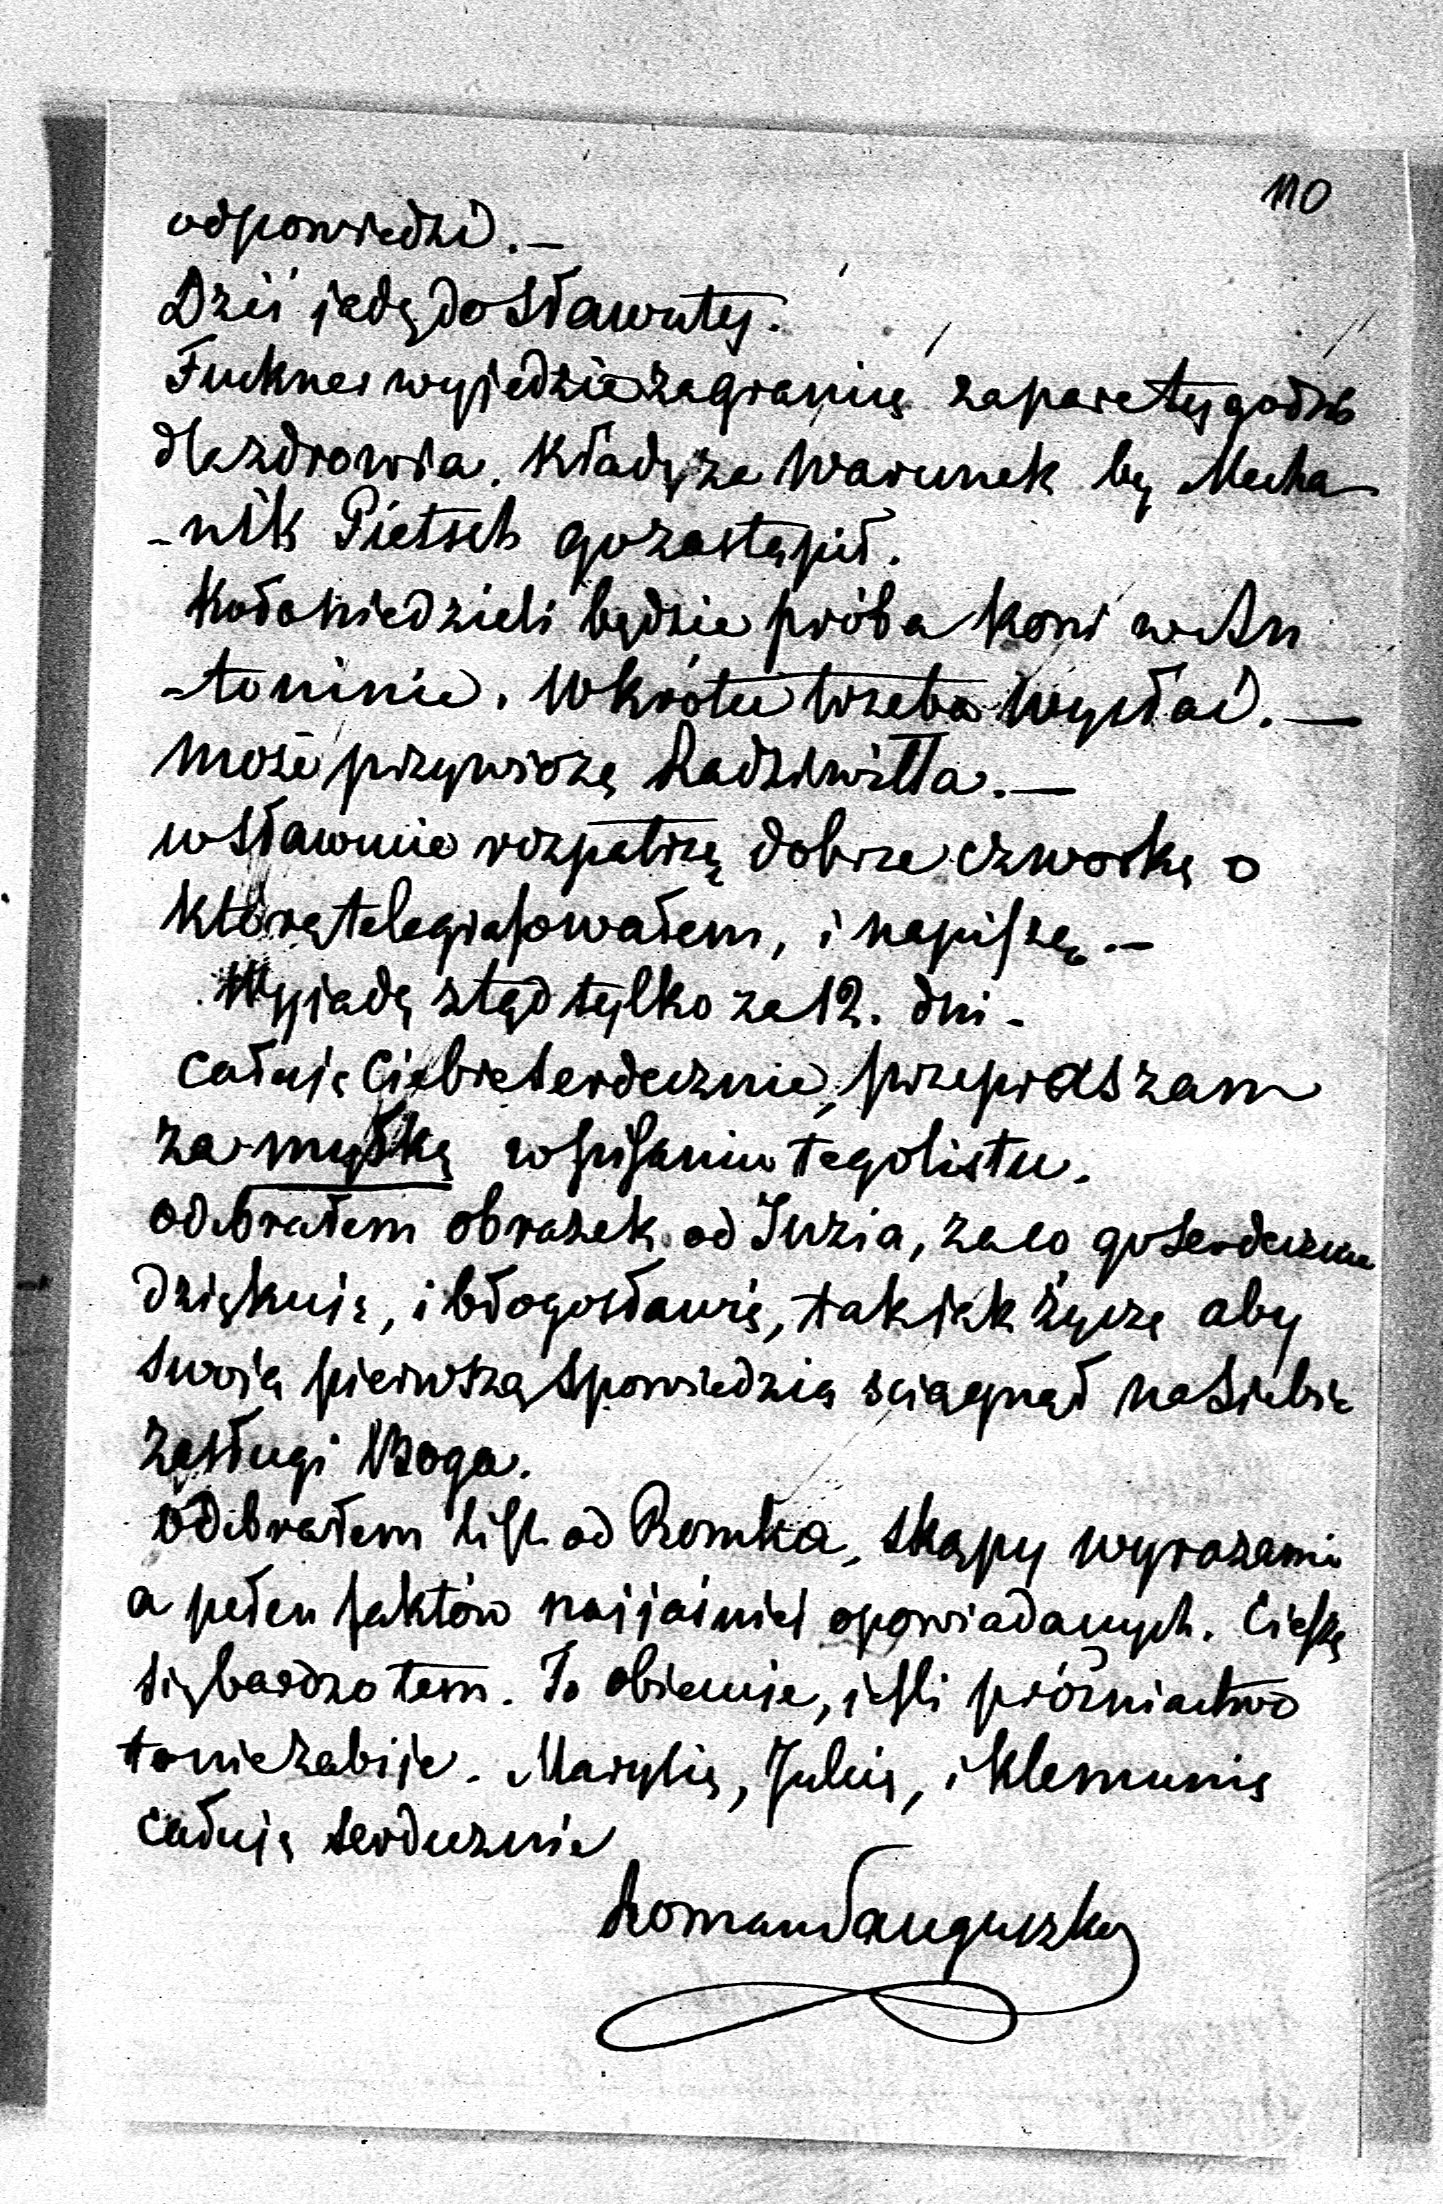 110
odpowiedzi. —
Dziś jadę do Sławuty.
Fuckner wyjedzie zagranicę za parę tygodni
dla zdrowia. Kładę za warunek by Mecha-
-nik Pietsch go zastąpił.
Koło niedzieli będzie próba koni w An
-toninie. Wkrótce trzeba wysłać. —
może przywiozą Radziwiłła. —
w Sławucie rozpatrzę dobrze czworkę o
którą telegrafowałem, i napiszę. —
Wyjadę ztąd tylko za 12. dni -
Całuję Ciebie serdecznie, przepraszam
za myłkę w pisaniu tego listu.
odebrałem obrazek od Juzia, za co go serdecznie
dziękuję, i błogosławię, tak jak życzę aby
swoją pierwszą spowiedzią sciągnął na siebie
zasługi Boga.
Odebrałem list od Romka, skąpy wyrazami
a pełen faktów najjaśniej opowiadanych. Cieszę
się bardzo tem. To obiecuje, jeśli próżniactwo
to nie zabije. Marylię, Julcię, i Klemunię
całuję serdecznie
Roman Sanguszko